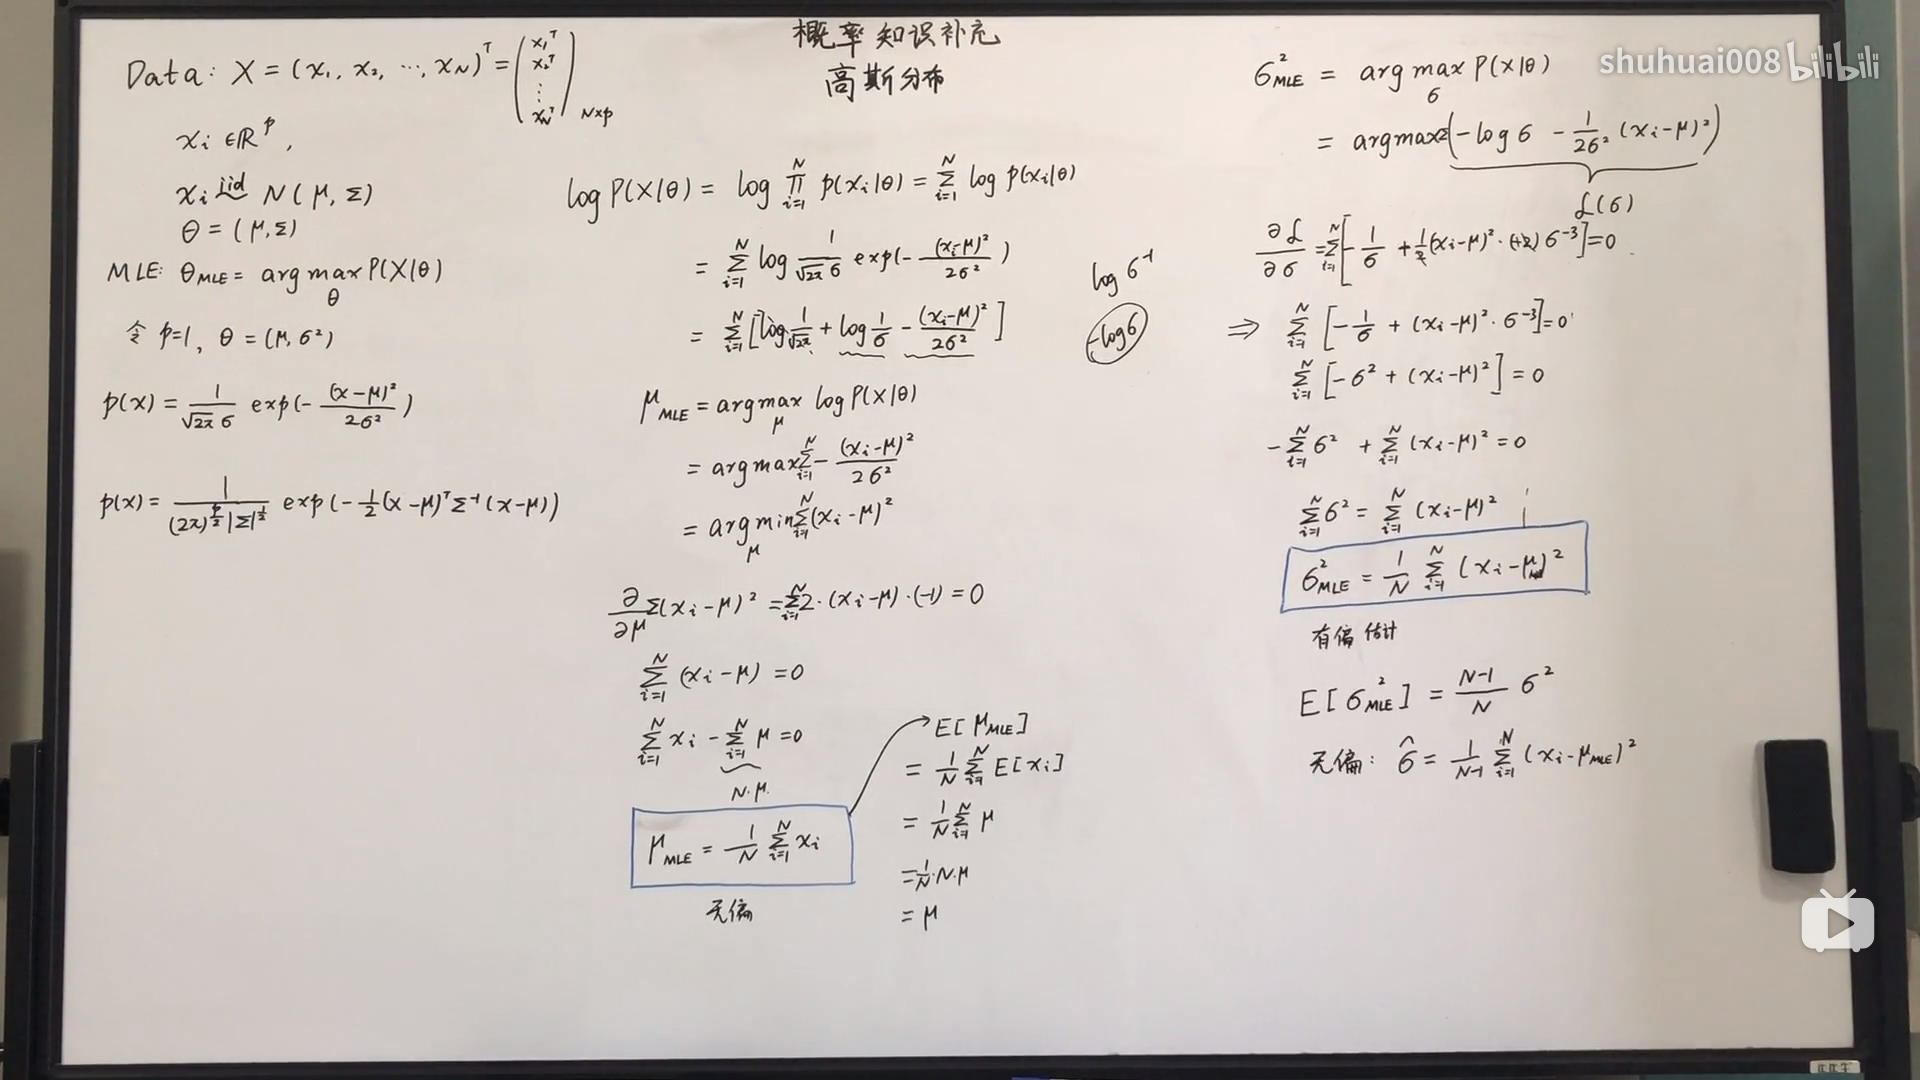 概率知识补充
高斯分布
Data: X = (x₁, x₂, ⋯, x_N)ᵀ = (x₁ᵀ x₂ᵀ ⋮ x_Nᵀ)_{N×p}
xᵢ ∈ ℝᵖ,
xᵢ iid~ N(μ, Σ)
θ = (μ, Σ)
MLE: θ_MLE = arg max_θ P(X|θ)
令 p=1, θ = (μ, σ²)
p(x) = 1/(√2π σ) exp(- (x-μ)²/2σ²)
p(x) = 1/((2π)^{p/2} |Σ|^{1/2}) exp(- 1/2 (x-μ)ᵀ Σ⁻¹ (x-μ))
log P(X|θ) = log ∏_{i=1}^N p(xᵢ|θ) = Σ_{i=1}^N log p(xᵢ|θ)
= Σ_{i=1}^N log 1/(√2π σ) exp(- (xᵢ-μ)²/2σ²)
= Σ_{i=1}^N [log 1/√2π + log 1/σ - (xᵢ-μ)²/2σ²]
log σ⁻¹
-log σ
μ_MLE = arg max_μ log P(X|θ)
= arg max Σ_{i=1}^N - (xᵢ-μ)²/2σ²
= arg min_μ Σ_{i=1}^N (xᵢ-μ)²
∂/∂μ Σ(xᵢ-μ)² = Σ_{i=1}^N 2·(xᵢ-μ)·(-1) = 0
Σ_{i=1}^N (xᵢ-μ) = 0
Σ_{i=1}^N xᵢ - Σ_{i=1}^N μ = 0
N·μ
μ_MLE = 1/N Σ_{i=1}^N xᵢ
无偏
E[μ_MLE]
= 1/N Σ_{i=1}^N E[xᵢ]
= 1/N Σ_{i=1}^N μ
= 1/N·N·μ
= μ
σ²_MLE = arg max_σ P(X|θ)
= arg max Σ(-log σ - 1/2σ² (xᵢ-μ)²)
ℒ(σ)
∂ℒ/∂σ = Σ_{i=1}^N [- 1/σ + 1/2 (xᵢ-μ)²·(+2) σ⁻³] = 0
⇒ Σ_{i=1}^N [- 1/σ + (xᵢ-μ)²·σ⁻³] = 0
Σ_{i=1}^N [-σ² + (xᵢ-μ)²] = 0
- Σ_{i=1}^N σ² + Σ_{i=1}^N (xᵢ-μ)² = 0
Σ_{i=1}^N σ² = Σ_{i=1}^N (xᵢ-μ)²
σ²_MLE = 1/N Σ_{i=1}^N (xᵢ-μ)²
有偏估计
E[σ²_MLE] = (N-1)/N σ²
无偏: σ̂ = 1/(N-1) Σ_{i=1}^N (xᵢ-μ_MLE)²
shuhuai008 bilibili